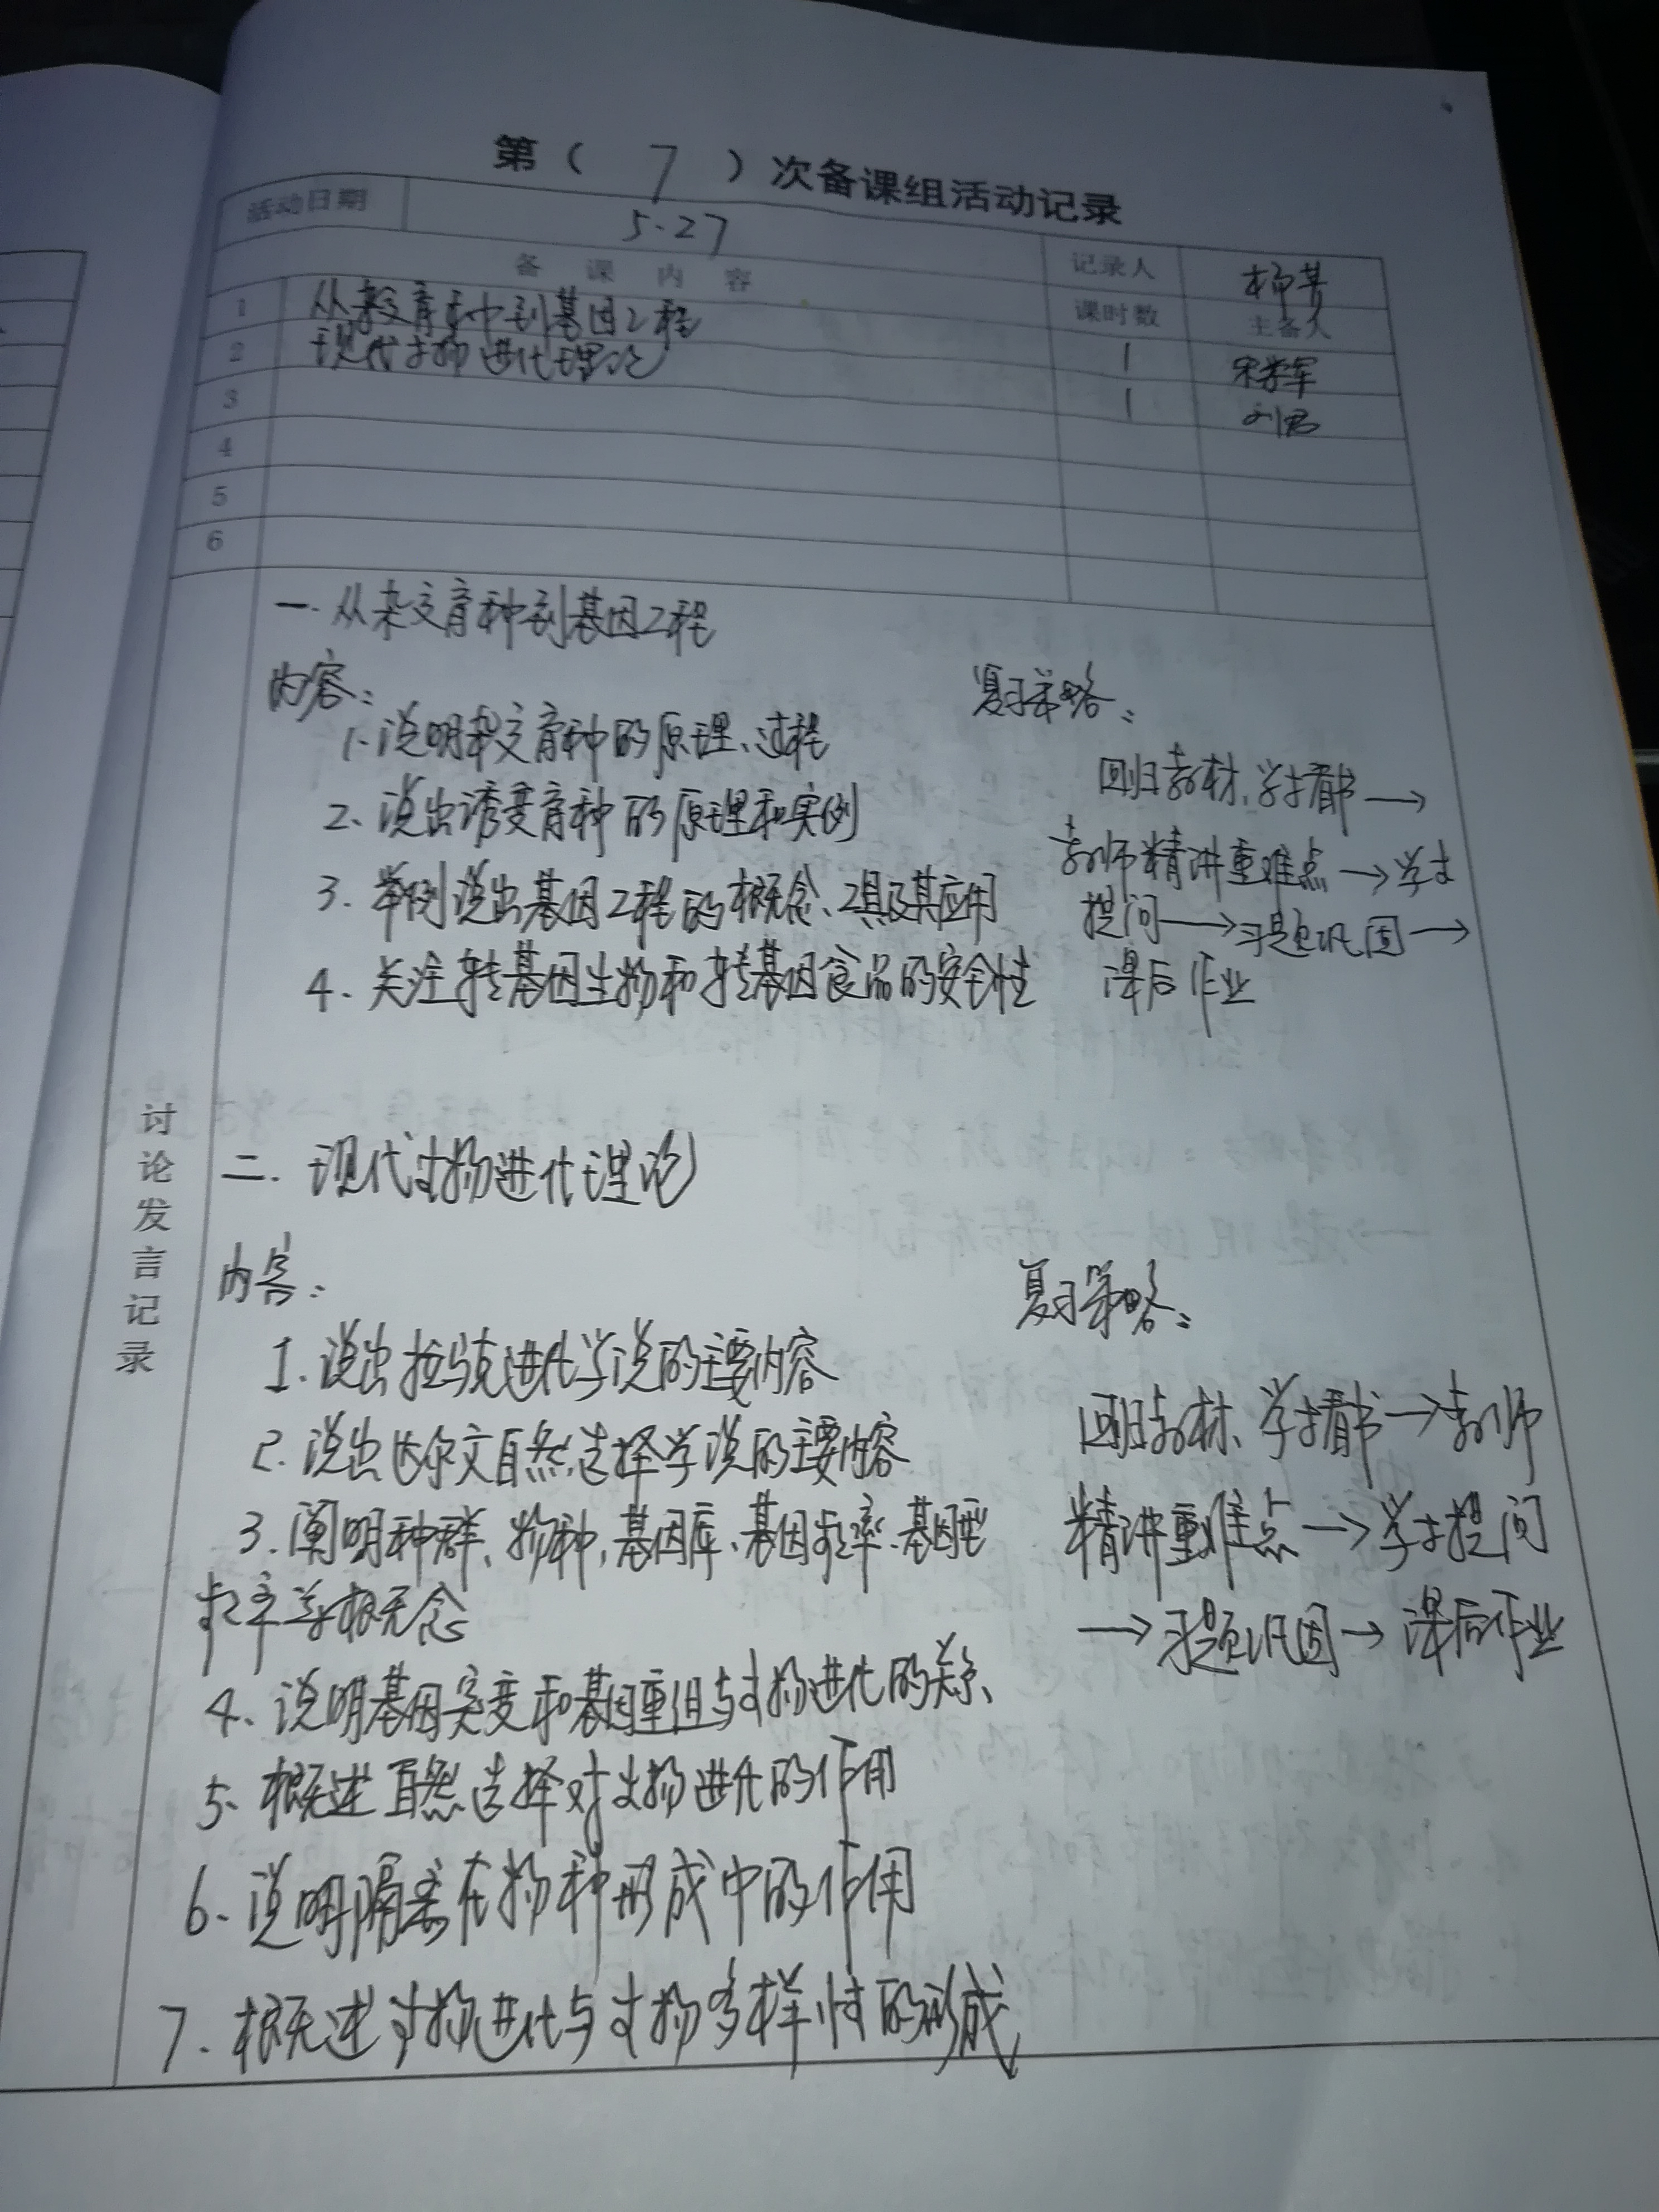 第（ 7 ）次备课组活动记录
活动日期 5.27 记录人 杨芳
备 课 内 容 课时数 主备人
1 从杂交育种到基因工程 1 宋学军
2 现代生物进化理论 1 刘君
3
4
5
6
讨论发言记录
一.从杂交育种到基因工程
内容： 复习策略：
1.说明杂交育种的原理、过程
2、说出诱变育种的原理和实例
3.举例说出基因工程的概念、工具及其应用
4、关注转基因生物和转基因食品的安全性
回归教材、学生看书→
教师精讲重难点→学生
提问→习题巩固→
课后作业
二.现代生物进化理论
内容： 复习策略：
1.说出拉马克进化学说的主要内容
2.说出达尔文自然选择学说的主要内容
3.阐明种群、物种、基因库、基因频率、基因型
频率等概念
4、说明基因突变和基因重组与生物进化的关系、
5、概述自然选择对生物进化的作用
6、说明隔离在物种形成中的作用
7.概述生物进化与生物多样性的形成
回归教材、学生看书→教师
精讲重难点→学生提问
→习题巩固→课后作业